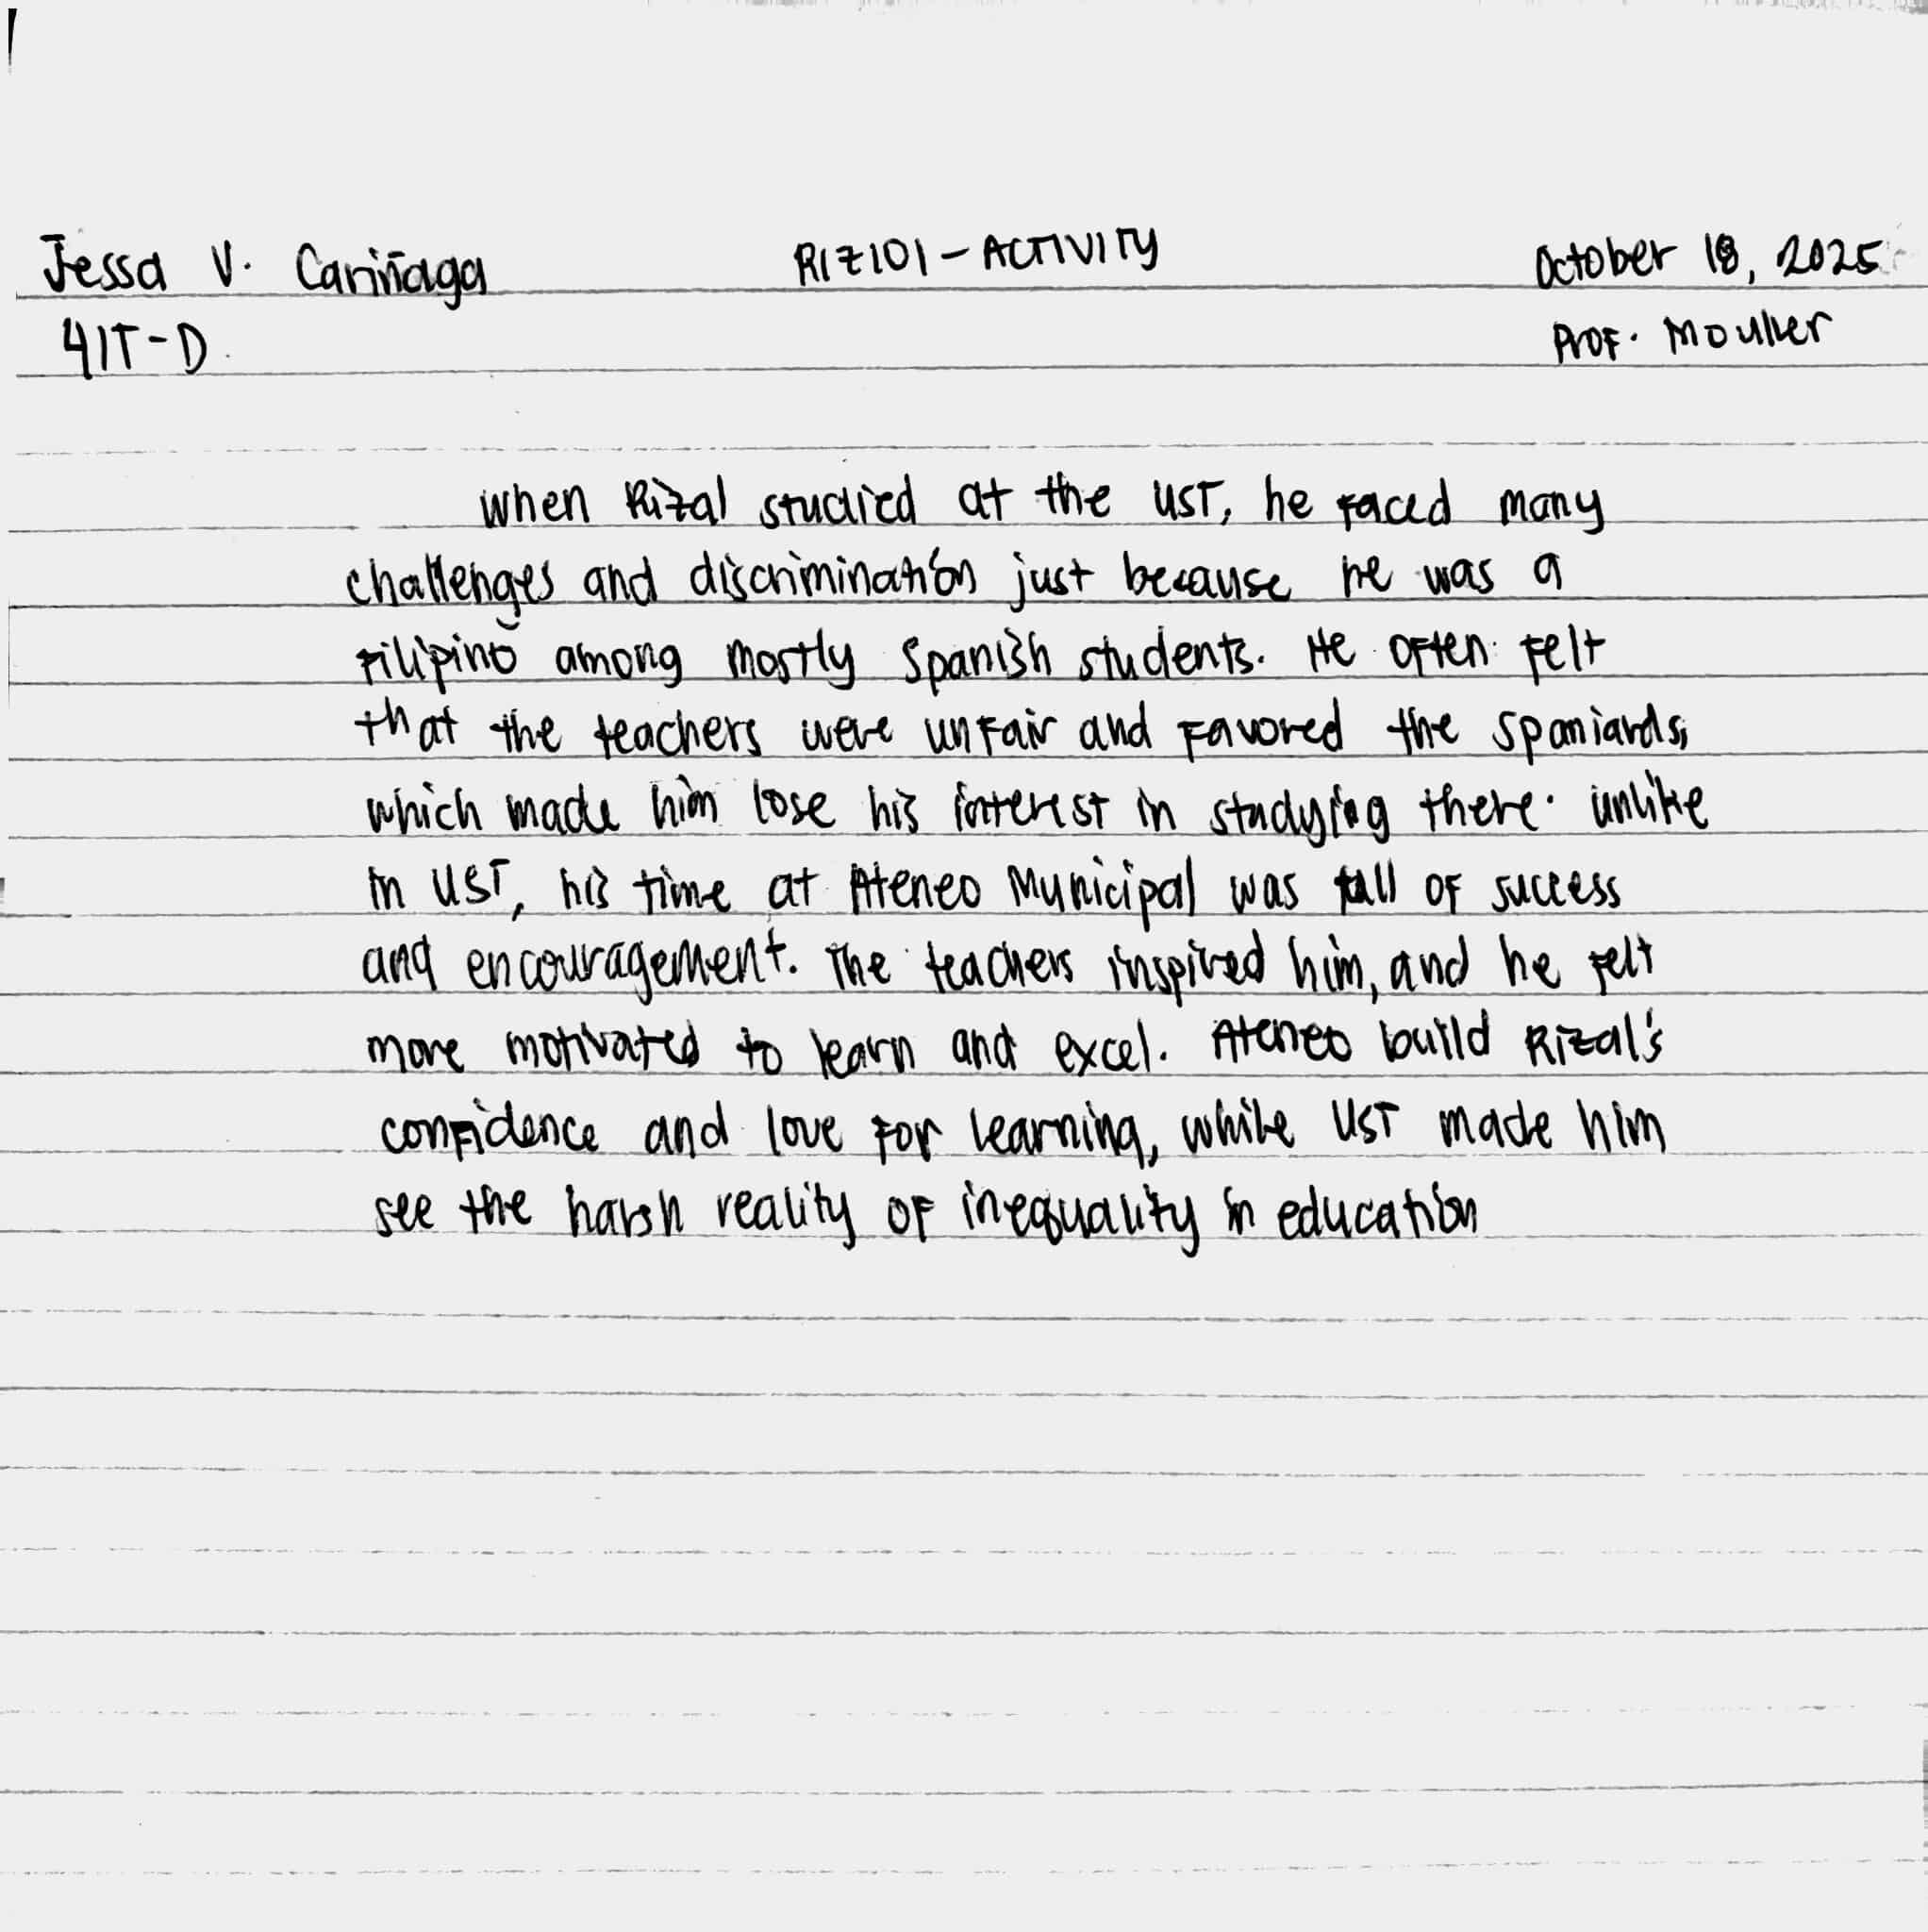 Jessa V. Cariñaga RIZ101 - ACTIVITY October 18, 2025
4IT-D Prof. Moulier
When Rizal studied at the UST, he faced many
challenges and discrimination just because he was a
Filipino among mostly Spanish students. He often felt
that the teachers were unfair and favored the Spaniards,
which made him lose his interest in studying there. Unlike
in UST, his time at Ateneo Municipal was full of success
and encouragement. The teachers inspired him, and he felt
more motivated to learn and excel. Ateneo build Rizal's
confidence and love for learning, while UST made him
see the harsh reality of inequality in education